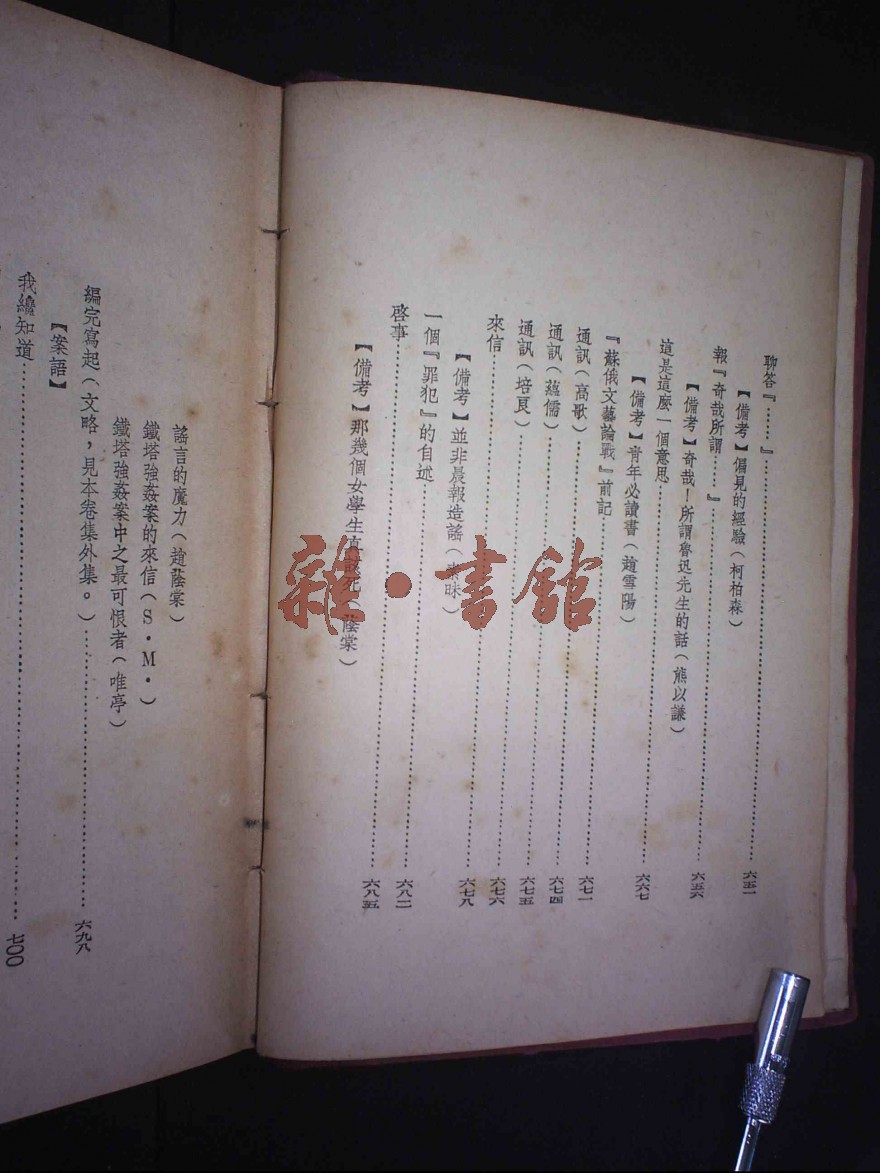 聊答『……』……六五一
【備考】偏見的經驗（柯柏森）
報『奇哉所謂……』……六五六
【備考】奇哉！所謂魯迅先生的話（熊以謙）
這是這麼一個意思……六六七
【備考】青年必讀書（趙雪陽）
『蘇俄文藝論戰』前記……六七一
通訊（高歌）……六七四
通訊（蘊儒）……六七五
通訊（培良）……六七六
來信……六七八
【備考】並非晨報造謠（素昧）
一個『罪犯』的自述……六八二
啓事……六八五
【備考】那幾個女學生真該死（蔭棠）
謠言的魔力（趙蔭棠）
鐵塔強姦案的來信（S・M・）
鐵塔強姦案中之最可恨者（唯亭）
編完寫起（文略，見本卷集外集。）……六九八
【案語】
我纔知道……七〇〇
雜・書館